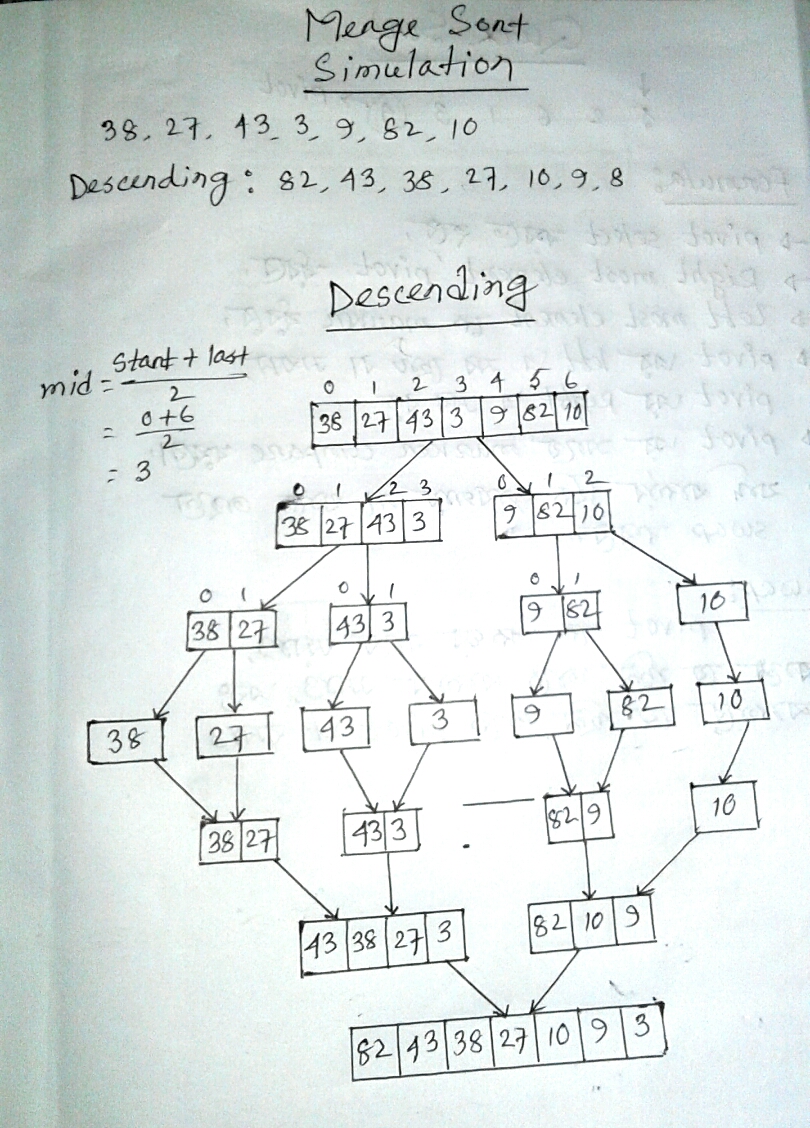 Merge Sort
Simulation
38, 27, 43, 3, 9, 82, 10
Descending : 82, 43, 38, 27, 10, 9, 8
Descending
mid = start + last
2
= 0+6
2
= 3
0 1 2 3 4 5 6
38 27 43 3 9 82 10
0 1 2 3 0 1 2
38 27 43 3 9 82 10
0 1 0 1 0 1
38 27 43 3 9 82 10
38 27 43 3 9 82 10
38 27 43 3 82 9 10
43 38 27 3 82 10 9
82 43 38 27 10 9 3